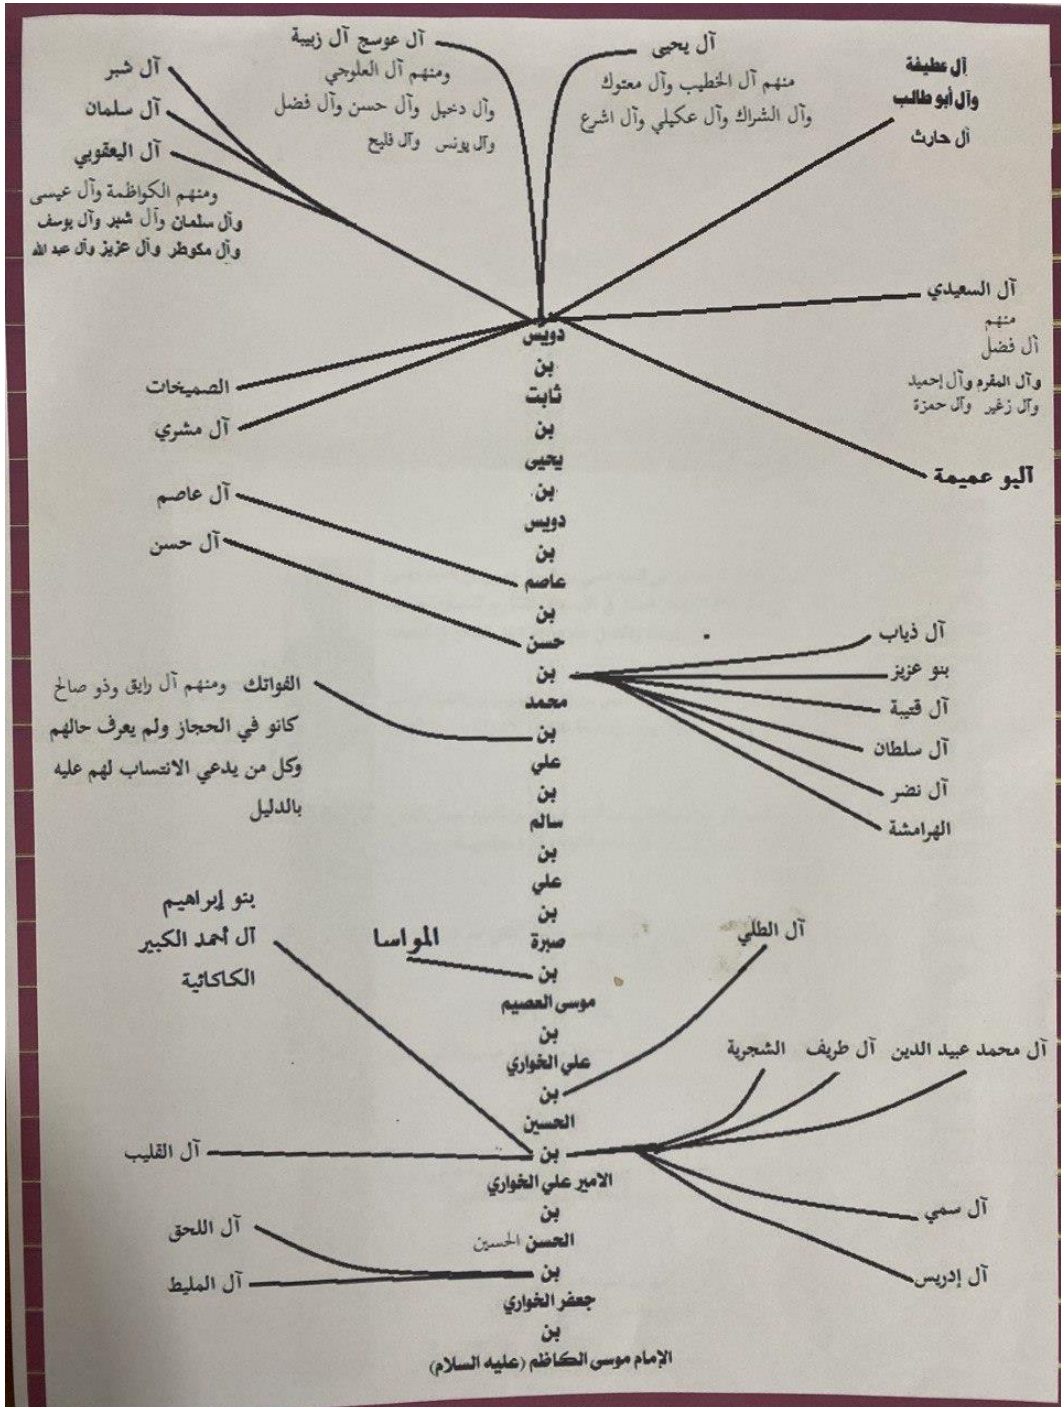 آل عوسج آل زبيبة
ومنهم آل العلوجي
وآل دخيل وآل حسن وآل فضل
وآل يونس وآل فليح
آل يحيى
منهم آل الخطيب وآل معتوك
وآل الشراك وآل عكيلي وآل اشرع
آل عطيفة
وآل أبو طالب
آل حارث
آل شبر
آل سلمان
آل اليعقوبي
ومنهم الكواظمة وآل عيسى
وآل سلمان وآل شبر وآل يوسف
وآل مكوطر وآل عزيز وآل عبد الله
آل السعيدي
منهم
آل فضل
وآل المقرم وآل إحميد
وآل زغير وآل حمزة
آلبو عميمة
الصميخات
آل مشري
آل عاصم
آل حسن
دويس
بن
ثابت
بن
يحيى
بن
دويس
بن
عاصم
بن
حسن
بن
محمد
بن
علي
بن
سالم
بن
علي
بن
صبرة
بن
موسى العصيم
بن
علي الخواري
بن
الحسين
بن
الامير علي الخواري
بن
الحسن الحسين
بن
جعفر الخواري
بن
الإمام موسى الكاظم (عليه السلام)
آل ذياب
بنو عزيز
آل قتيبة
آل سلطان
آل نضر
الهرامشة
الفواتك ومنهم آل رايق وذو صالح
كانو في الحجاز ولم يعرف حالهم
وكل من يدعي الانتساب لهم عليه
بالدليل
بنو إبراهيم
آل أحمد الكبير
الكاكائية
المواسا
آل الطلي
آل محمد عبيد الدين
آل طريف
الشجرية
آل القليب
آل سمي
آل إدريس
آل اللحق
آل المليط